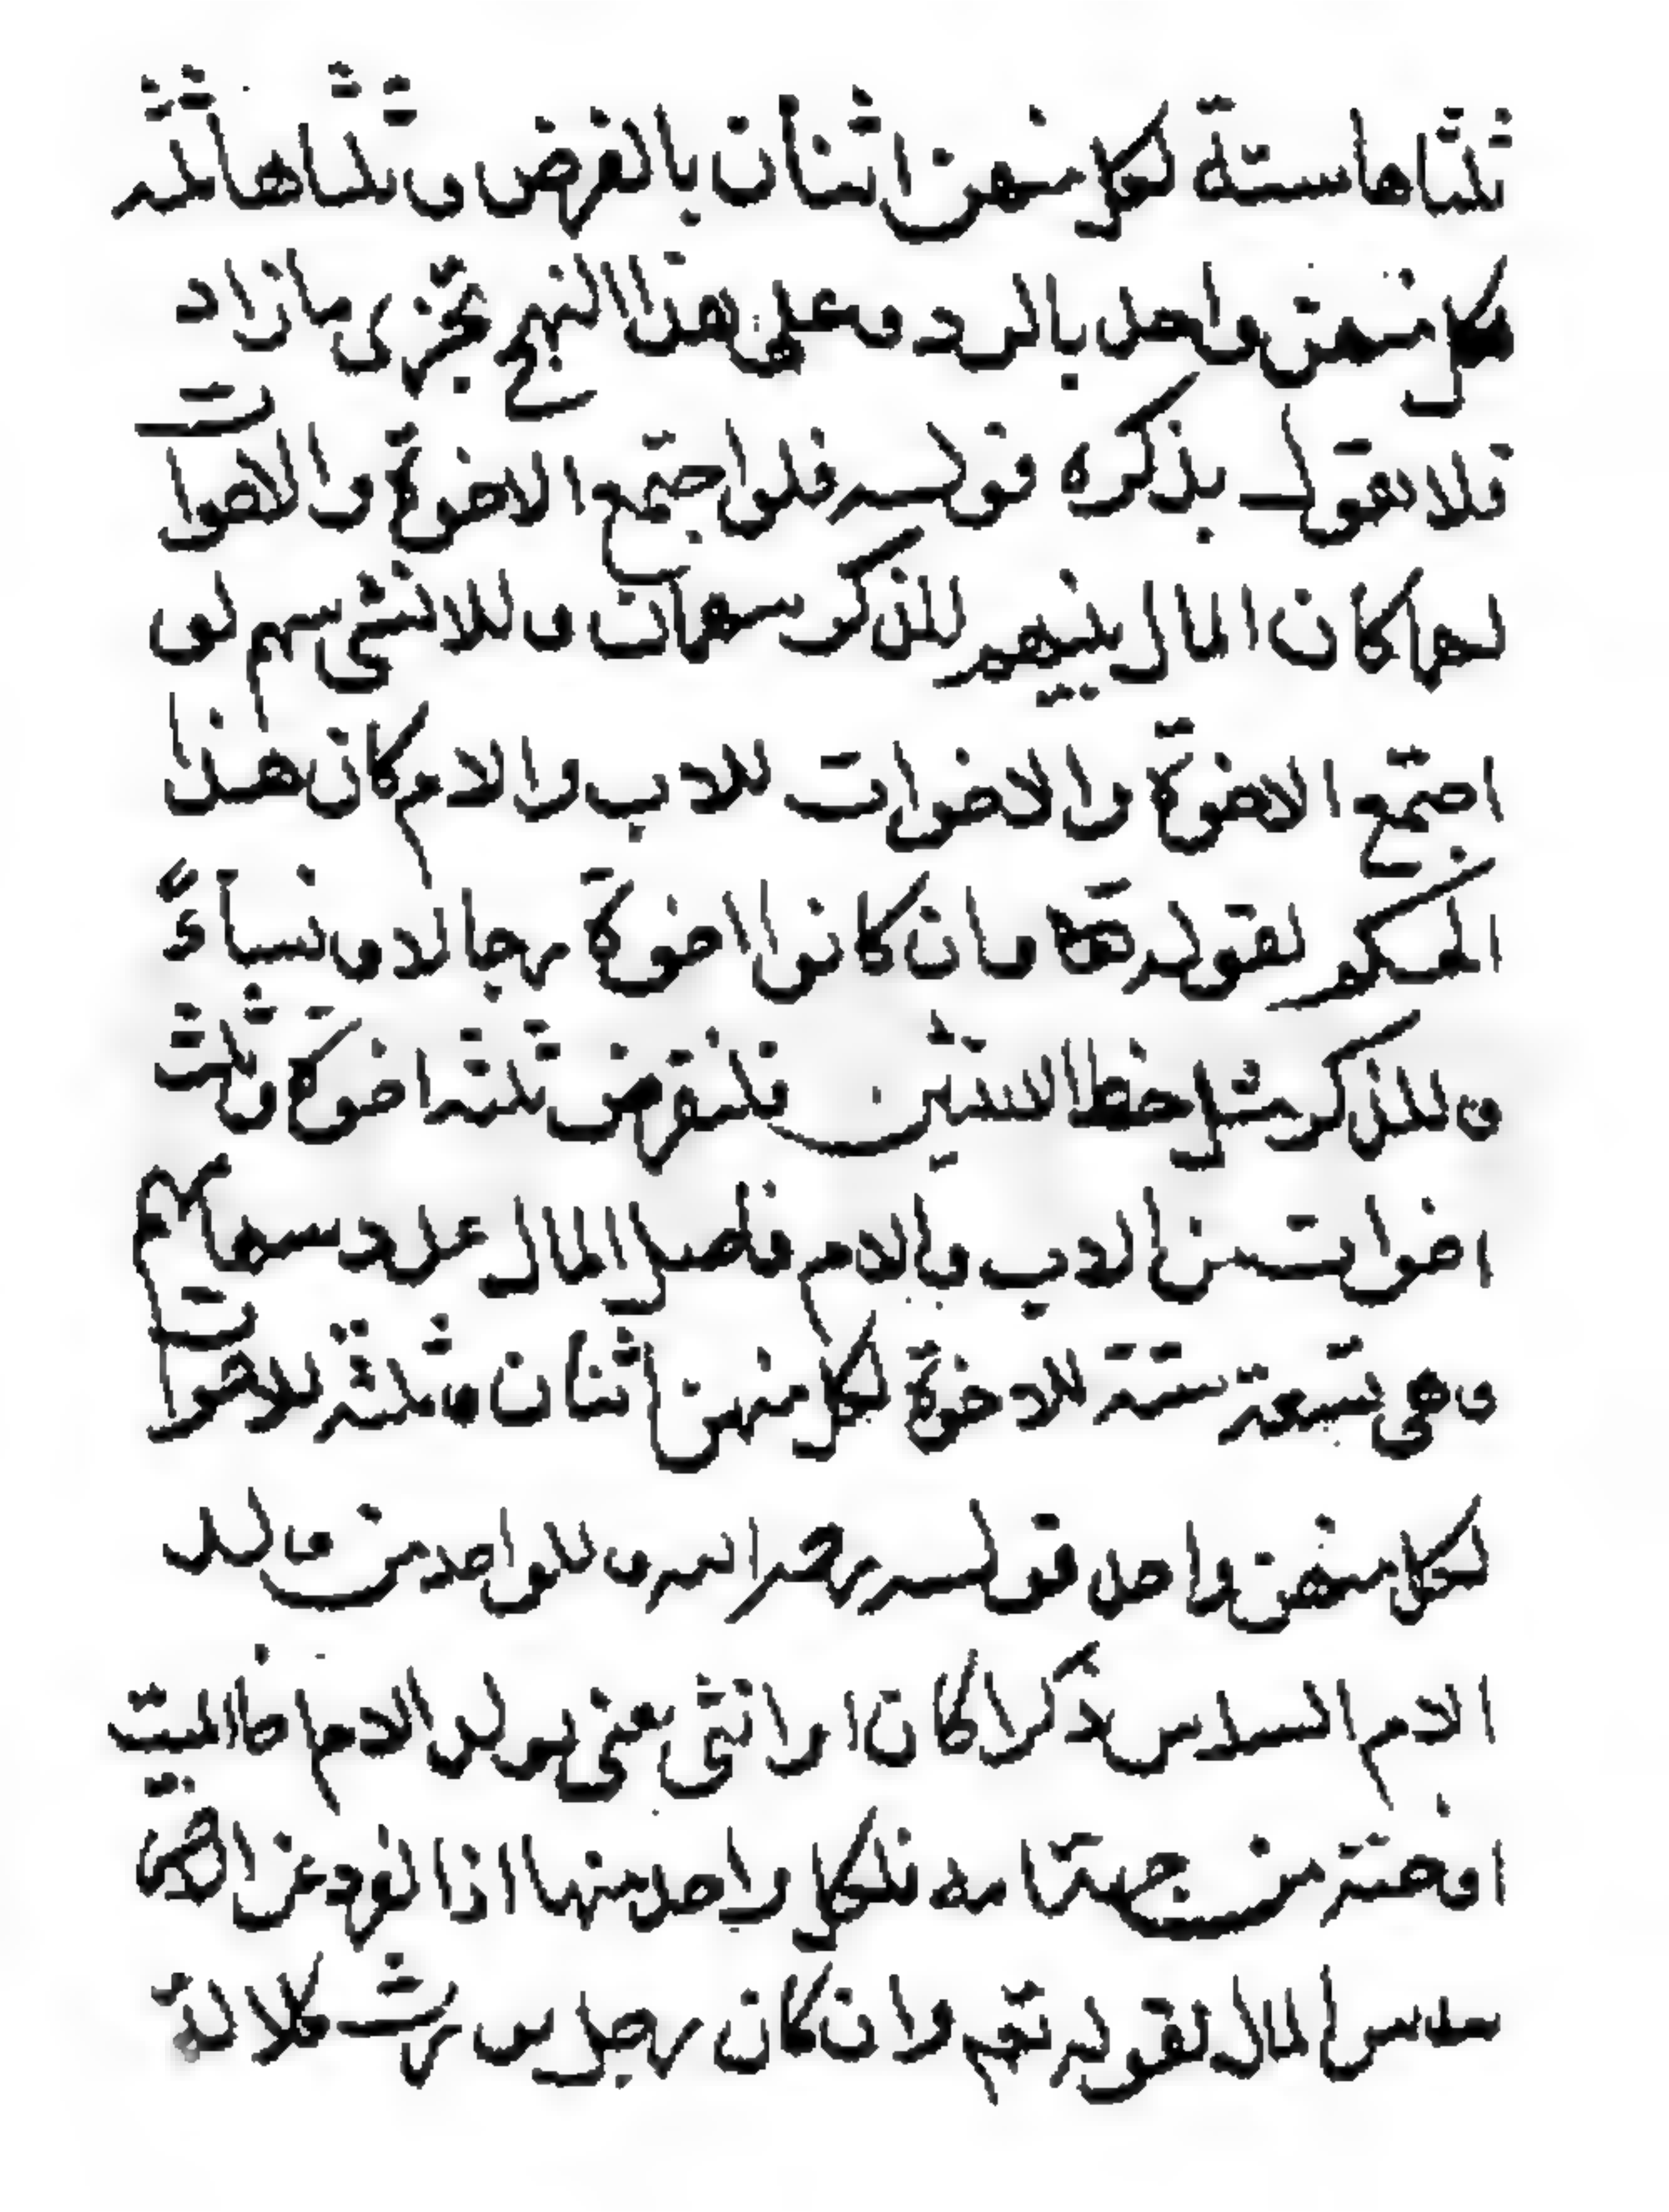 ثلثاها ستة لكل منهن اثنان بالفرض و ثلثاها ثلثه
لكل منهن واحد بالرد وعلى هذا النهج يجزى ما زاد
فلا نقول بذكره قوله فلو اجتمع الاخوة والاخوات
لهما كان المال بينهم للذكر سهمان وللانثى سهم لو
اجتمع الاخوة والاخوات للاب والام كان هذا
الحكم لقوله تعا وان كانوا اخوة رجالا ونساءً
وللذكر مثل حظ الانثيين فلنفرض ثلثه اخوة وثلث
اخوات من الاب والام فاصل المال عدد سهامهم
وهى تسعة ستة للاخوة لكل منهن اثنان وثلثه للاخوات
لكل منهن واحد قوله رحمه الله وللواحد من ولد
الام السدس ذكرا كان او انثى يعنى بولد الام اخا الميت
او اخته من جهة امه فلكل واحد منهما اذا انفرد عن
سدس المال لقوله تعم وان كان رجل يورث كلالة